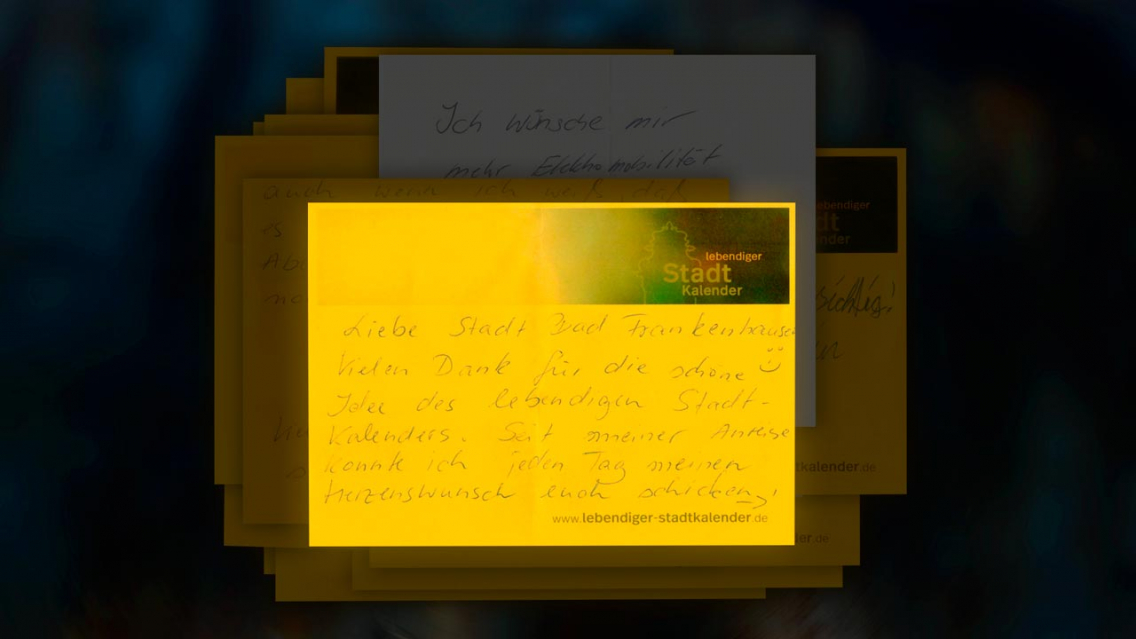 Ich wünsche mir
mehr Elektromobilität
auch wenn ich weiß daß
es
lebendiger
Stadt
Kalender
lebendiger
dt
nder
Liebe Stadt Bad Frankenhausen
Vielen Dank für die schöne
Idee des lebendigen Stadt-
Kalenders. Seit meiner Anreise
konnte ich jeden Tag meinen
Herzenswunsch euch schicken,
www.lebendiger-stadtkalender.de
tkalender.de
er.de